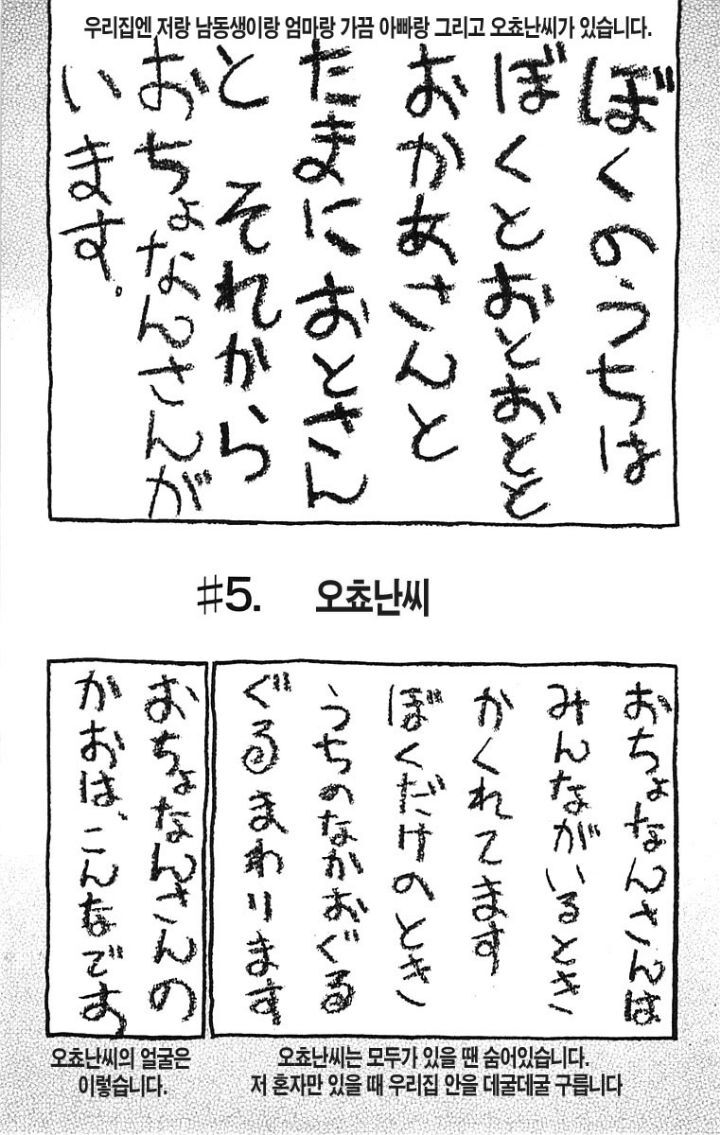 우리집엔 저랑 남동생이랑 엄마랑 가끔 아빠랑 그리고 오쵸난씨가 있습니다.
ぼくのうちは
ぼくとおとおとと
おかあさんと
たまにおとさん
と それから
おちょなんさんが
います。
#5. 오쵸난씨
おちょなんさんは
みんながいるとき
かくれてます
ぼくだけのとき
うちのなかおぐる
ぐるまわります
おちょなんさんの
かおは、こんなです
오쵸난씨의 얼굴은
이렇습니다.
오쵸난씨는 모두가 있을 땐 숨어있습니다.
저 혼자만 있을 때 우리집 안을 데굴데굴 구릅니다